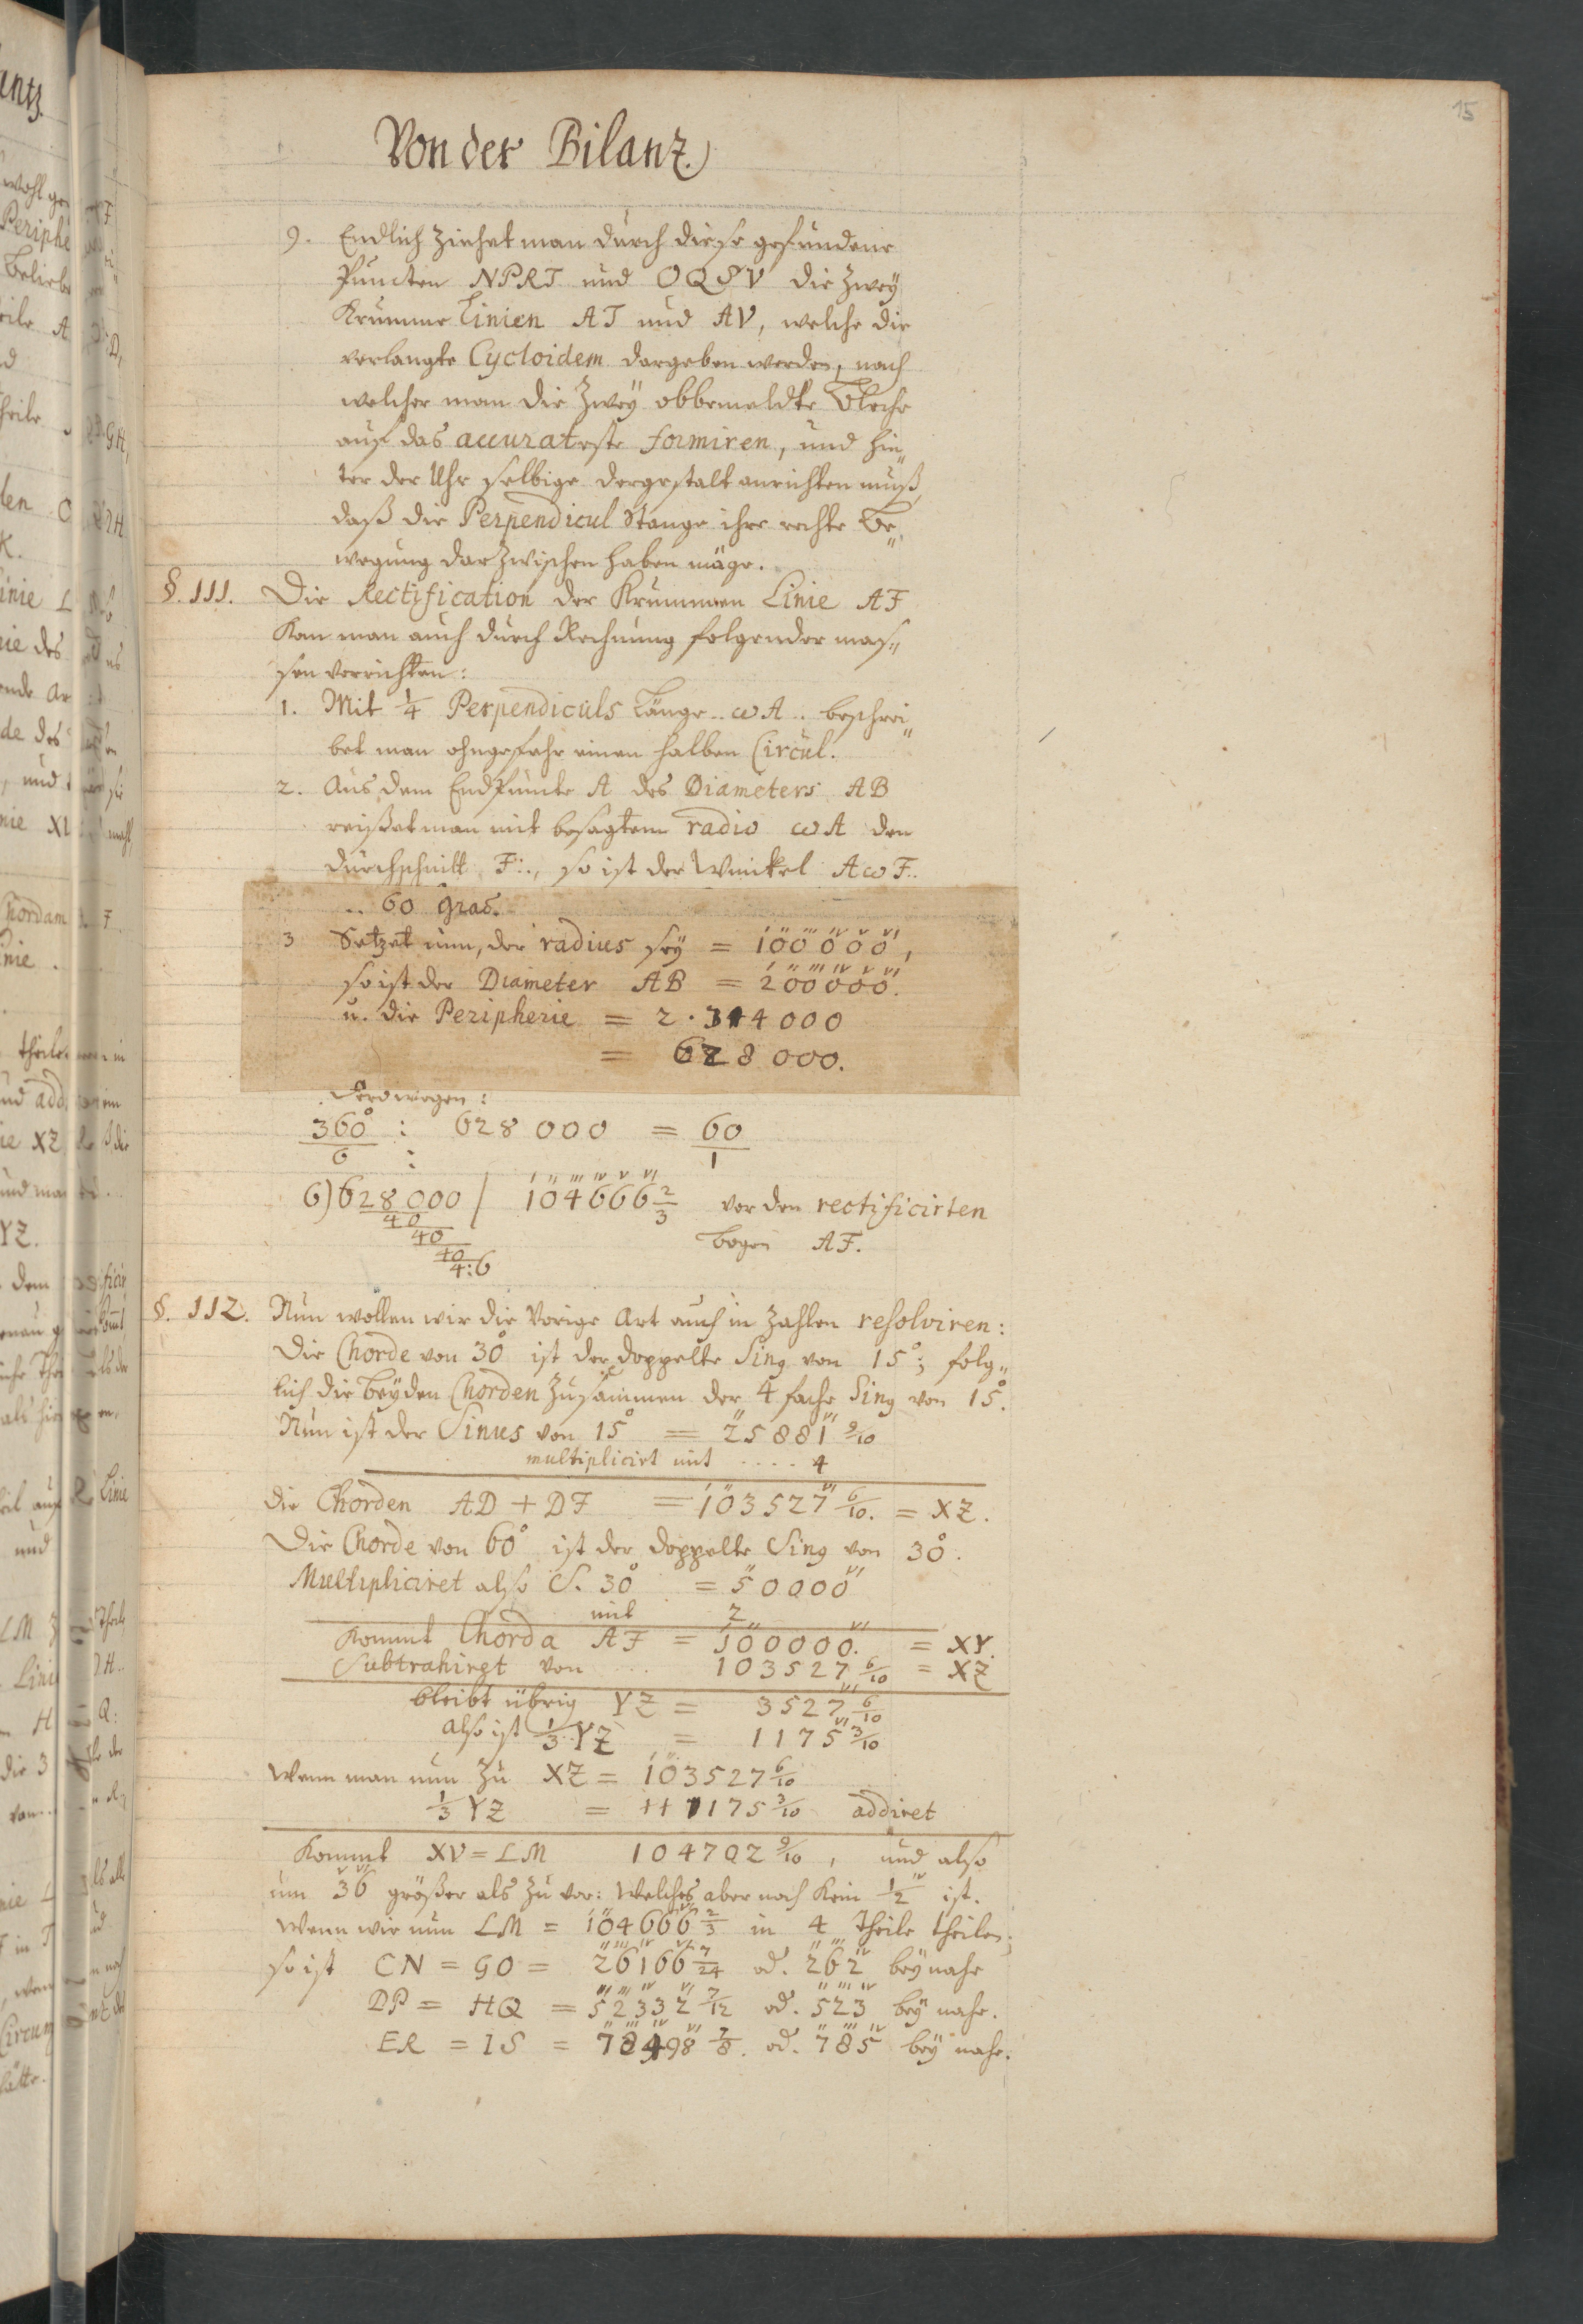 15
Von der Bilanz.
9. Endlich ziehet man durch diese gefundene
Puncten NPRT und OQSV die zweÿ
Krumme Linien AT und AV, welche die
verlangte Cycloidem dargeben werden, nach
welcher man die zweÿ obbemeldte Bleche
auf das accurateste formiren, und hin„
ter der Uhr selbige dergestalt anrichten muß,
daß die Perpendicul Stange ihre rechte Be„
wegung darzwischen haben mäge.
§. 111. Die Rectification der Krummen Linie AF
Kan man auch durch Rechnung folgender mas„
sen verrichten:
1. Mit 1/4 Perpendiculs Länge .. ωA .. beschrei„
bet man ohngefehr einen halben Circul.
2. Aus dem Endpuncte A des Diameters AB
reißet man mit besagtem radio ωA den
durchschnitt F.., so ist der Winckel AωF..
.. 60 Grad.
3 Setzet nun, der radius seÿ = 100000,
so ist der Diameter AB = 200000.
u. die Peripherie = 2 · 314000
= 628000.
Derowegen:
360° : 628000 = 60
6 : 1
6) 628000 / 104666 2/3 vor den rectificirten
40
40 bogen AF.
40
4:6
§. 112. Nun wollen wir die Vorige Art auch in Zahlen resolviren:
Die Chorde von 30° ist der doppelte Sing von 15°; folg„
lich die beÿden Chorden zusammen der 4 fache Sing von 15°.
Nun ist der Sinus von 15° = 25881 9/10
multiplicirt mit .... 4
die Chorden AD + DF = 103527 6/10. = XZ.
Die Chorde von 60° ist der doppelte Sing von 30°.
Multipliciret also S. 30° = 50000
mit 2
Kommt Chorda AF = 100000. = XY.
Subtrahiret von ... 103527 6/10 = XZ
bleibt übrig YZ = 3527 6/10
also ist 1/3 YZ = 1175 3/10
Wenn man nun zu XZ = 103527 6/10
1/3 YZ = 1175 3/10 addiret
Kommt XV = LM 104702 9/10, und also
um 36 größer als zuvor: Welches aber noch kein 1/2 ist.
Wenn wir nun LM = 104666 2/3 in 4 Theile theilen;
so ist CN = GO = 26166 7/24 od. 262 beÿ nahe
DP = HQ = 52332 7/12 od. 523 beÿ nahe.
ER = IS = 78498 7/8. od. 785 beÿ nahe.